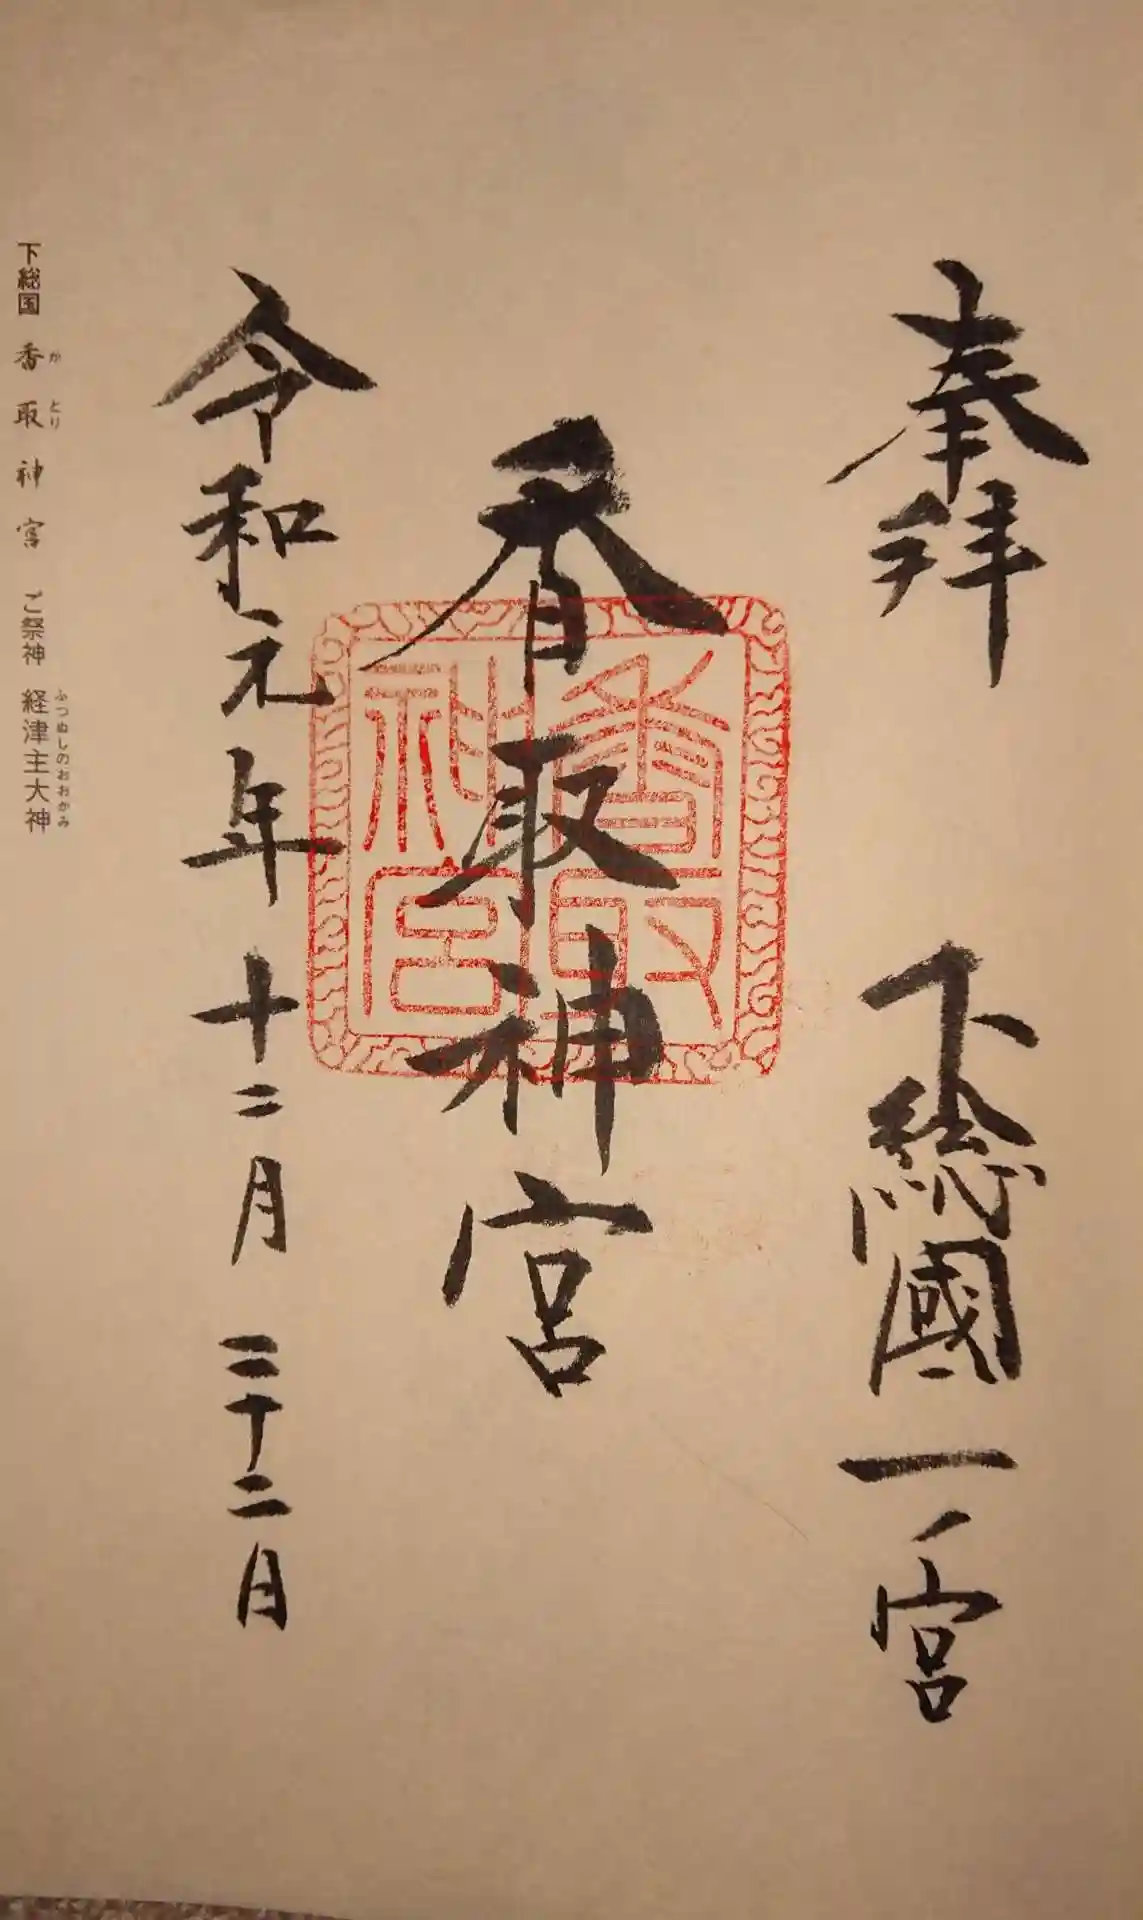 奉拝 下総國一ノ宮
香取神宮
香取神宮
令和元年十二月二十二日
下総国 香取神宮 ご祭神 経津主大神
かとり ふつぬしのおおかみ